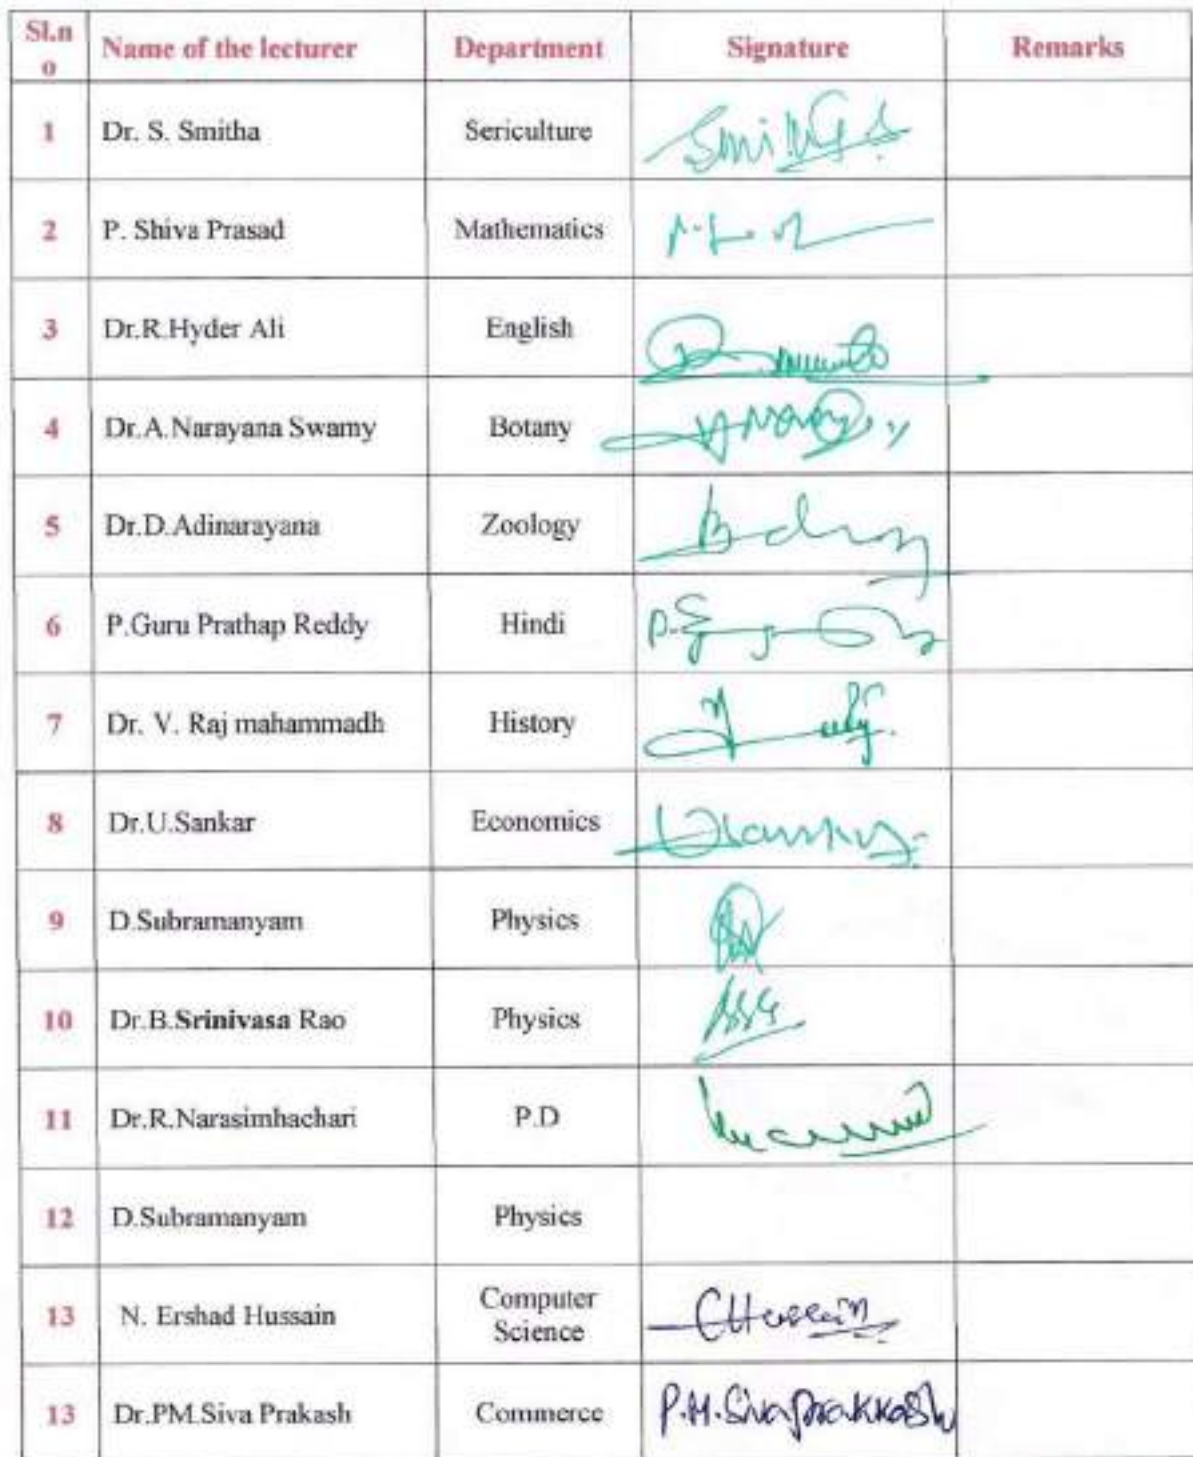 Sl.n
o
Name of the lecturer Department Signature Remarks
1 Dr. S. Smitha Sericulture
2 P. Shiva Prasad Mathematics
3 Dr.R.Hyder Ali English
4 Dr.A.Narayana Swamy Botany
5 Dr.D.Adinarayana Zoology
6 P.Guru Prathap Reddy Hindi
7 Dr. V. Raj mahammadh History
8 Dr.U.Sankar Economics
9 D.Subramanyam Physics
10 Dr.B.Srinivasa Rao Physics
11 Dr.R.Narasimhachari P.D
12 D.Subramanyam Physics
13 N. Ershad Hussain Computer
Science
13 Dr.PM.Siva Prakash Commerce P.M.Sivaprakkash